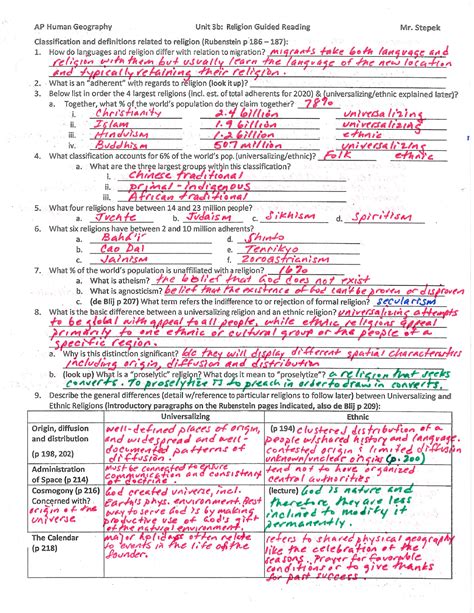 AP Human Geography Unit 3b: Religion Guided Reading Mr. Stepek
Classification and definitions related to religion (Rubenstein p 186 – 187):
1. How do languages and religion differ with relation to migration? migrants take both language and
religion with them but usually learn the language of the new location
and typically retaining their religion.
2. What is an "adherent" with regards to religion (look it up)?
3. Below list in order the 4 largest religions (incl. est. of total adherents for 2020) & (universalizing/ethnic explained later)?
a. Together, what % of the world's population do they claim together? 78%
i. Christianity 2.4 billion universalizing
ii. Islam 1.9 billion universalizing
iii. Hinduism 1.2 billion ethnic
iv. Buddhism 507 million universalizing
4. What classification accounts for 6% of the world's pop. (universalizing/ethnic)? Folk ethnic
a. What are the three largest groups within this classification?
i. Chinese traditional
ii. primal-indigenous
iii. African traditional
5. What four religions have between 14 and 23 million people?
a. Juche b. Judaism c. Sikhism d. Spiritism
6. What six religions have between 2 and 10 million adherents?
a. Bahá'í d. Shinto
b. Cao Dai e. Tenrikyo
c. Jainism f. Zoroastrianism
7. What % of the world's population is unaffiliated with a religion? 16%
a. What is atheism? the belief that God does not exist
b. What is agnosticism? belief that the existence of God can't be proven or disproven
c. (de Blij p 207) What term refers the indifference to or rejection of formal religion? secularism
8. What is the basic difference between a universalizing religion and an ethnic religion? universalizing attempts
to be global with appeal to all people, while ethnic religions appeal
primarily to one ethnic or cultural group or the people of a
specific region.
a. Why is this distinction significant? b/c they will display different spatial characteristics
including origin, diffusion and distribution
b. (look up) What is a "proselytic" religion? What does it mean to "proselytize"? a religion that seeks
converts. To proselytize is to preach in order to draw in converts.
9. Describe the general differences (detail w/reference to particular religions to follow later) between Universalizing and
Ethnic Religions (introductory paragraphs on the Rubenstein pages indicated, also de Blij p 209):
Universalizing Ethnic
Origin, diffusion and distribution (p 198, 202)
well-defined places of origin,
and widespread and well-
documented patterns of
diffusion.
(p 194) clustered distribution of a
people w/shared history and language.
contested origin & limited diffusion
unknown/unclear origins (p. 200)
Administration of Space (p 214)
must be connected to ensure
communication and consistency
of doctrine.
tend not to have organized
central authorities
Cosmogony (p 216)
Concerned with?
origin of the
universe
God created universe, incl.
Earth's phys. environment. Best
way to serve God is by making
productive use of God's gift
of the natural environment.
(lecture) God is nature and
therefore they are less
inclined to modify it
permanently.
The Calendar (p 218)
major holidays often relate
to events in the life of the
founder.
refers to shared physical geography
like the celebration of the
seasons. Prayer for favorable
conditions or to give thanks
for past success.